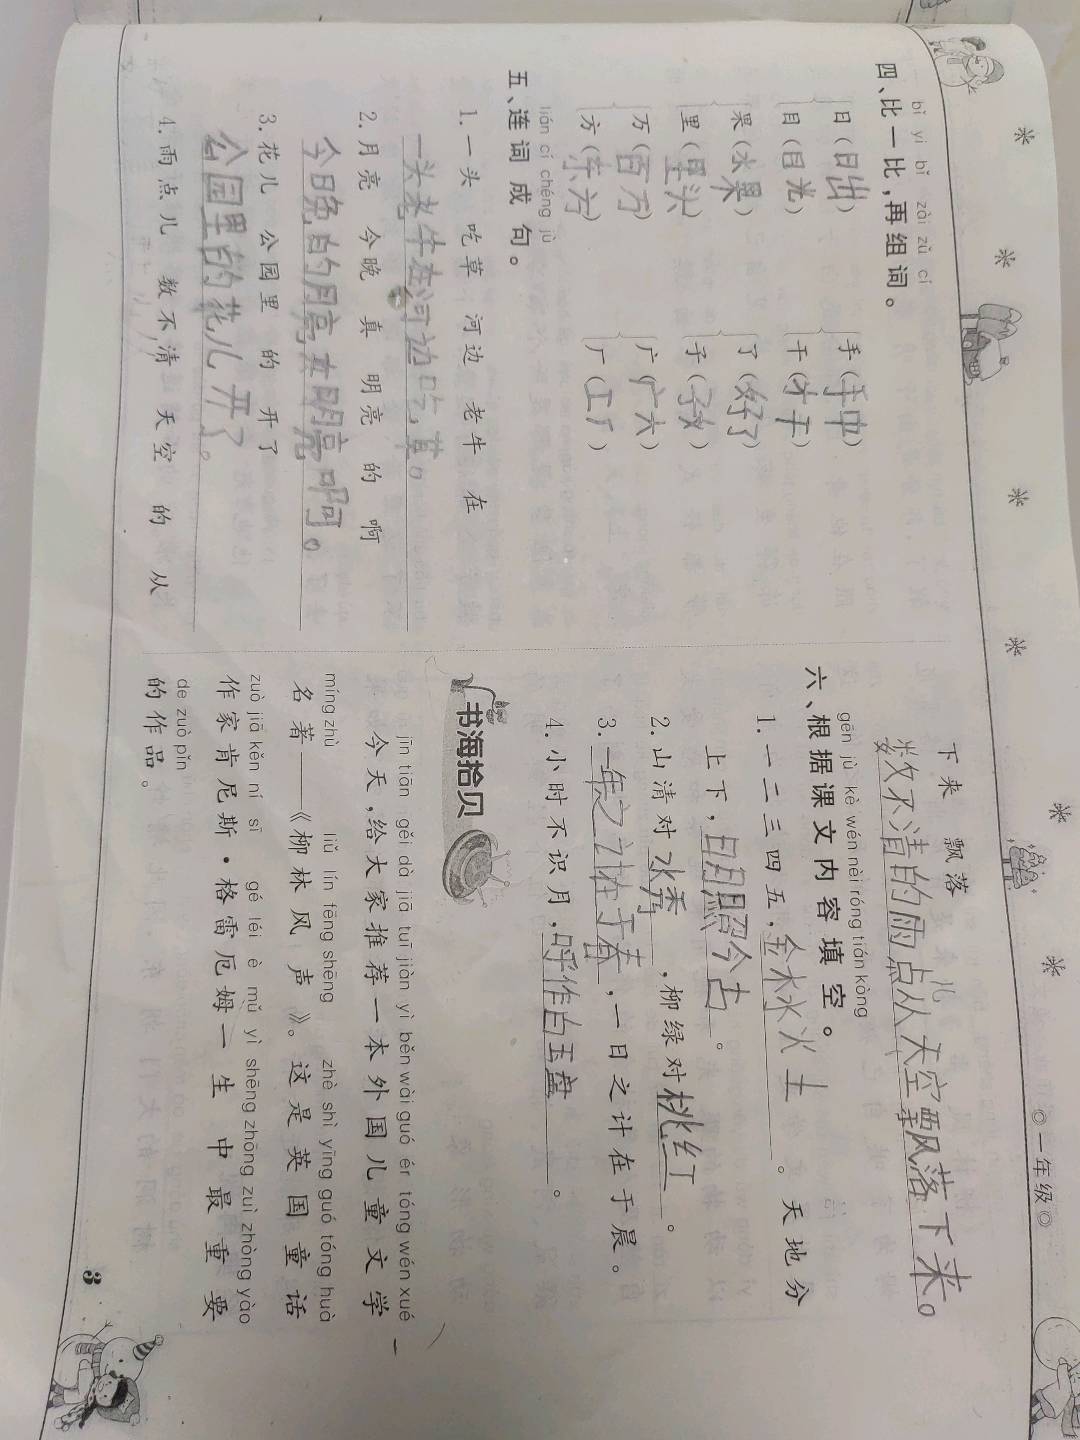 ◎一年级◎
bǐ yi bǐ zài zǔ cí
四、比一比,再组词。
日(日出) 手(手中)
目(目光) 干(才干)
果(水果) 了(好了)
里(里头) 子(子女)
万(百万) 广(广大)
方(东方) 厂(工厂)
lián cí chéng jù
五、连词成句。
1.一头 吃草 河边 老牛 在
一头老牛在河边吃草。
2.月亮 今晚 真 明亮 的 啊
今日晚的月亮真明亮啊。
3.花儿 公园里 的 开了
公园里的花儿开了。
4.雨点儿 数不清 天空 的 从
下来 飘落
数不清的雨点儿从天空飘落下来。
gēn jù kè wén nèi róng tián kòng
六、根据课文内容填空。
1.一二三四五,金木水火土。天地分
上下,日月照今古。
2.山清对水秀,柳绿对桃红。
3.一年之计在于春,一日之计在于晨。
4.小时不识月,呼作白玉盘。
书海拾贝
jīn tiān gěi dà jiā tuī jiàn yì běn wài guó ér tóng wén xué
今天,给大家推荐一本外国儿童文学
míng zhù liǔ lín fēng shēng zhè shì yīng guó tóng huà
名著——《柳林风声》。这是英国童话
zuò jiā kěn ní sī gé léi è mǔ yì shēng zhōng zuì zhòng yào
作家肯尼斯·格雷厄姆一生中最重要
de zuò pǐn
的作品。
3